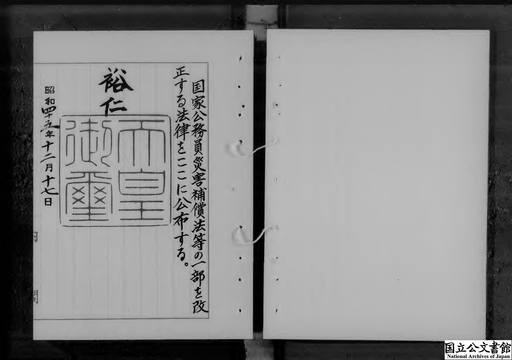 国家公務員災害補償法等の一部を改
正する法律をここに公布する。
裕仁
天皇御璽
昭和四十五年十二月十七日
内閣
国立公文書館
National Archives of Japan